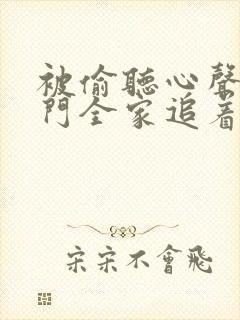 被偷聽心聲
門全家追着
宋宋不會飛